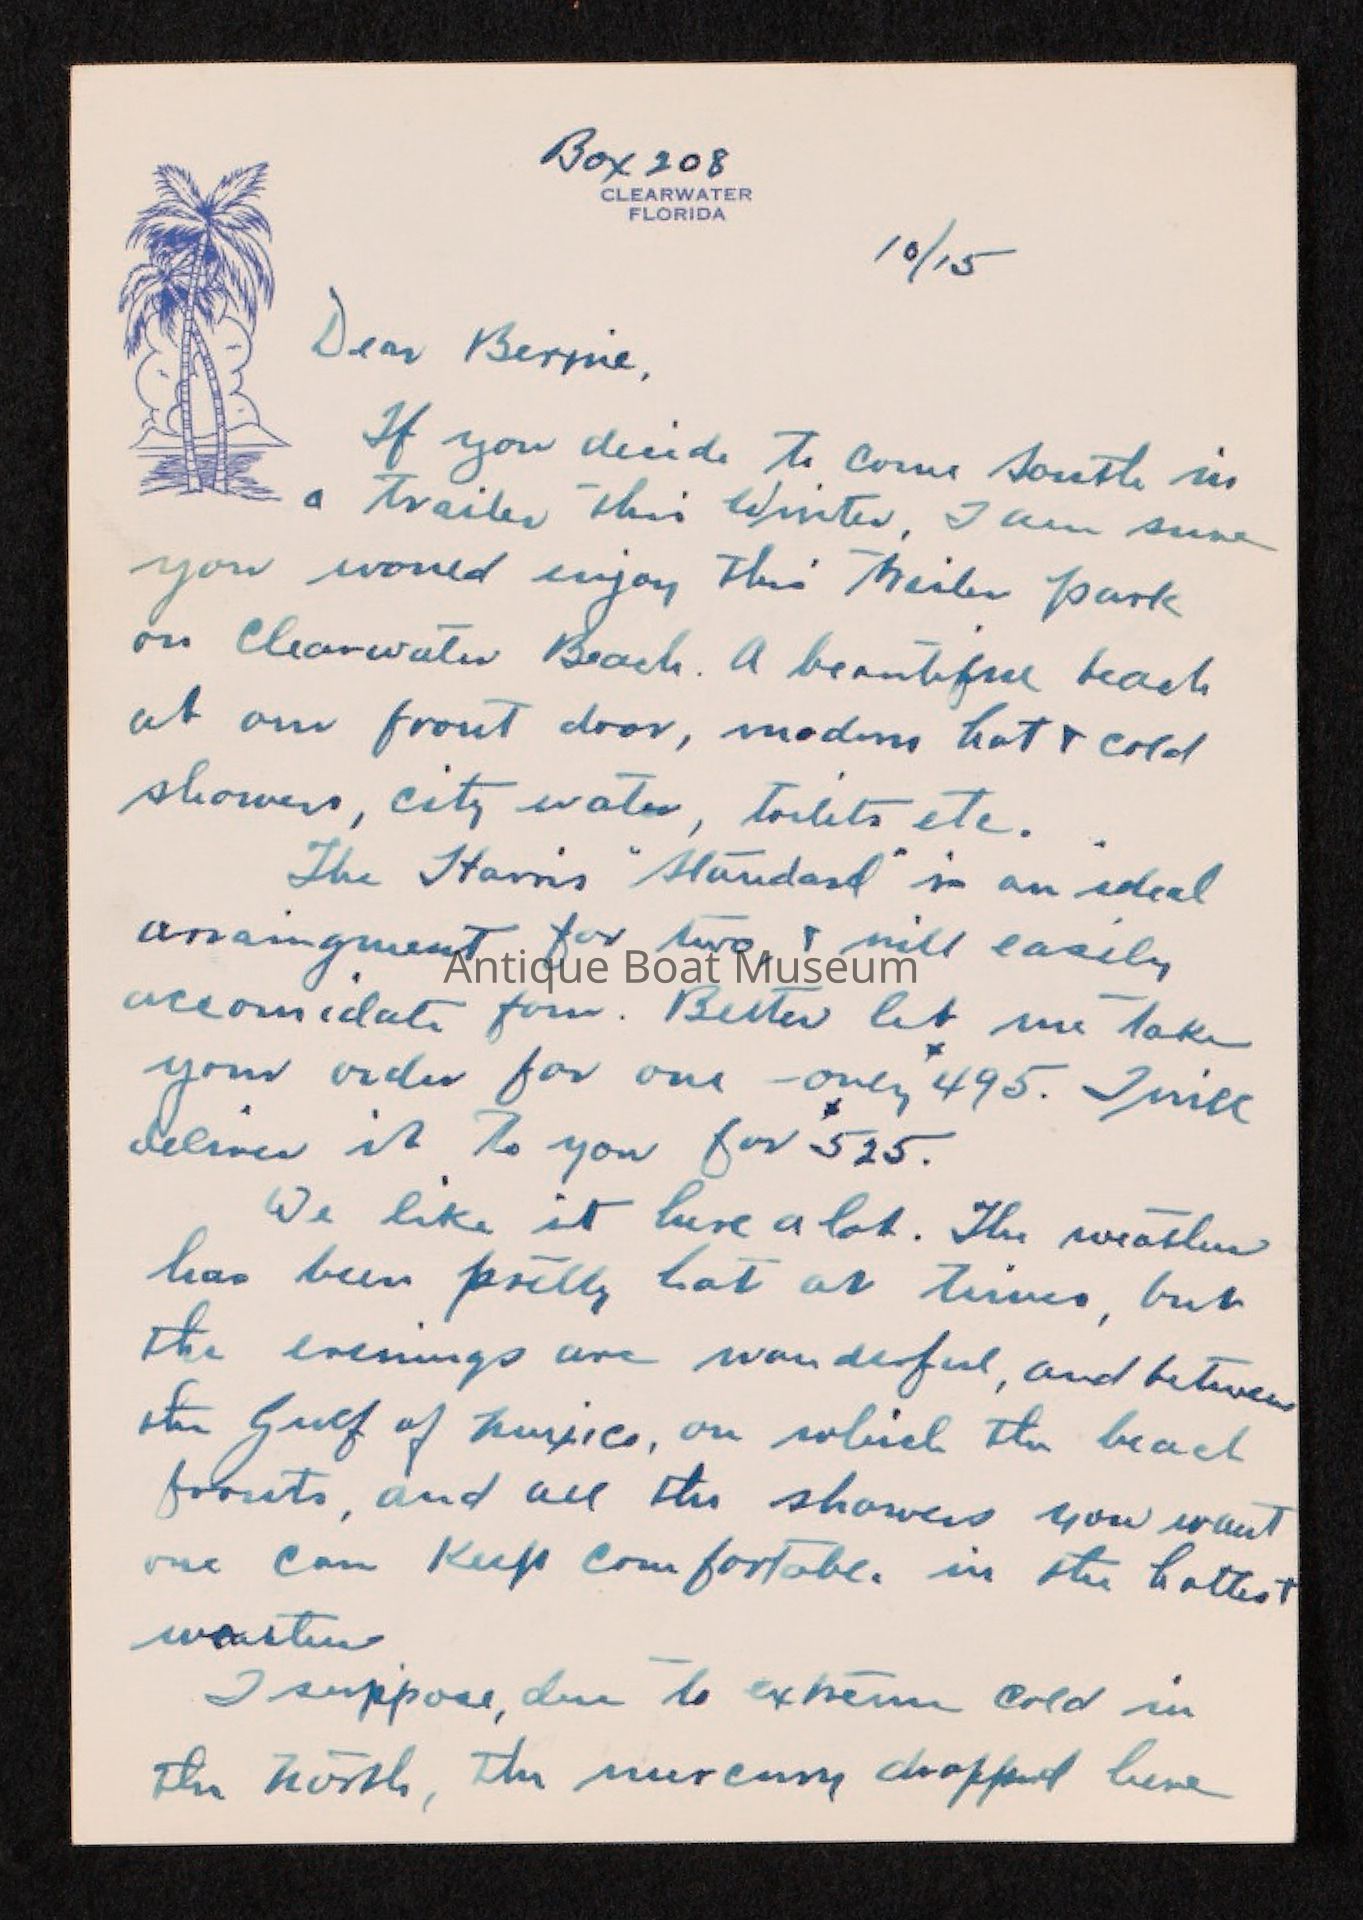 Box 208
CLEARWATER
FLORIDA
10/15
Dear Bernie,
If you decide to come South in
a trailer this Winter, I am sure
you would enjoy this trailer park
on Clearwater Beach. A beautiful beach
at our front door, modern hot & cold
showers, city water, toilets etc.
The Harris "Standard" is an ideal
arraingment for two, & will easily
Antique Boat Museum
accomidate four. Better let me take
your order for one - only $495. I will
deliver it to you for $525.
We like it here a lot. The weather
has been pretty hot at times, but
the evenings are wonderful, and between
the Gulf of Mexico, on which the beach
fronts, and all the showers you want
one can keep comfortable in the hottest
weather
I suppose, due to extreme cold in
the North, the mercury dropped here